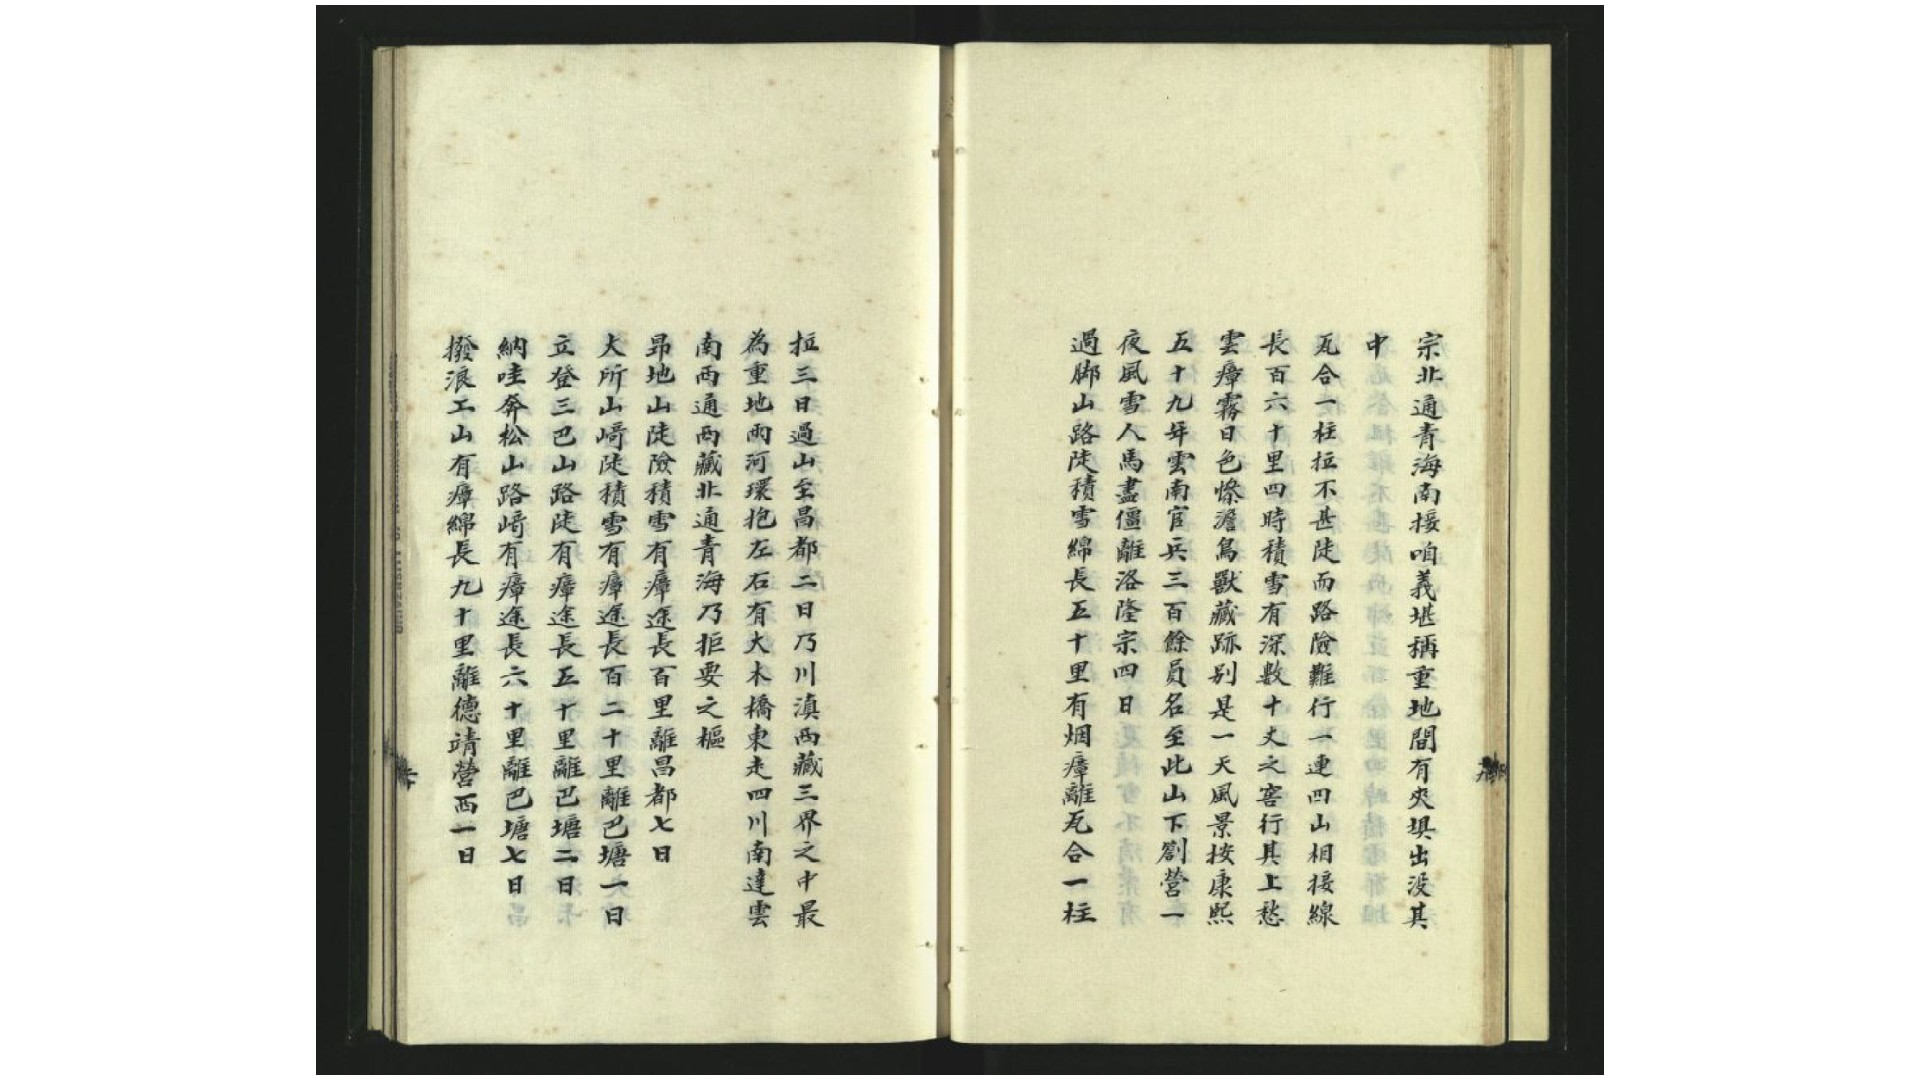 宗北通青海南接咱義堪稱重地間有夾壩出沒其
中
瓦合一柱拉不甚陡而路險難行一連四山相接線
長百六十里四時積雪有深數十丈之窖行其上愁
雲瘴霧日色慘澹鳥獸藏跡别是一天風景按康熙
五十九年雲南官兵三百餘員名至此山下劄營一
夜風雪人馬盡僵離洛隆宗四日
過脚山路陡積雪綿長五十里有烟瘴離瓦合一柱
拉三日過山至昌都二日乃川滇西藏三界之中最
為重地兩河環抱左右有大木橋東走四川南達雲
南西通西藏北通青海乃拒要之樞
昂地山陡險積雪有瘴途長百里離昌都七日
大所山﨑陡積雪有瘴途長百二十里離巴塘一日
立登三巴山路陡有瘴途長五十里離巴塘二日
納哇奔松山路﨑有瘴途長六十里離巴塘七日
撥浪工山有瘴綿長九十里離德靖營西一日